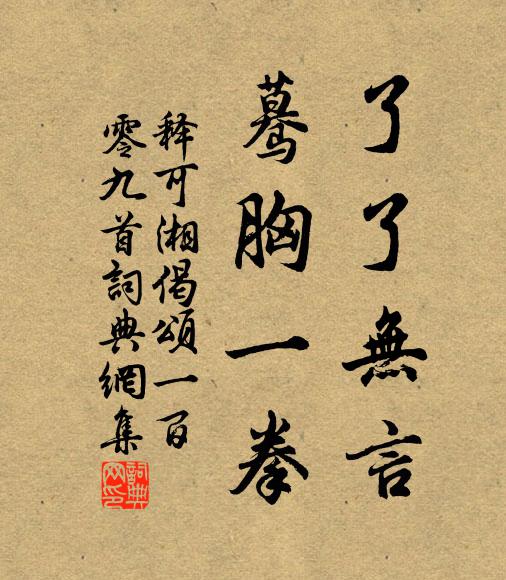 了了無言
驀胸一拳
释可湘偈頌一百
零九首詞典網集
詞典網印